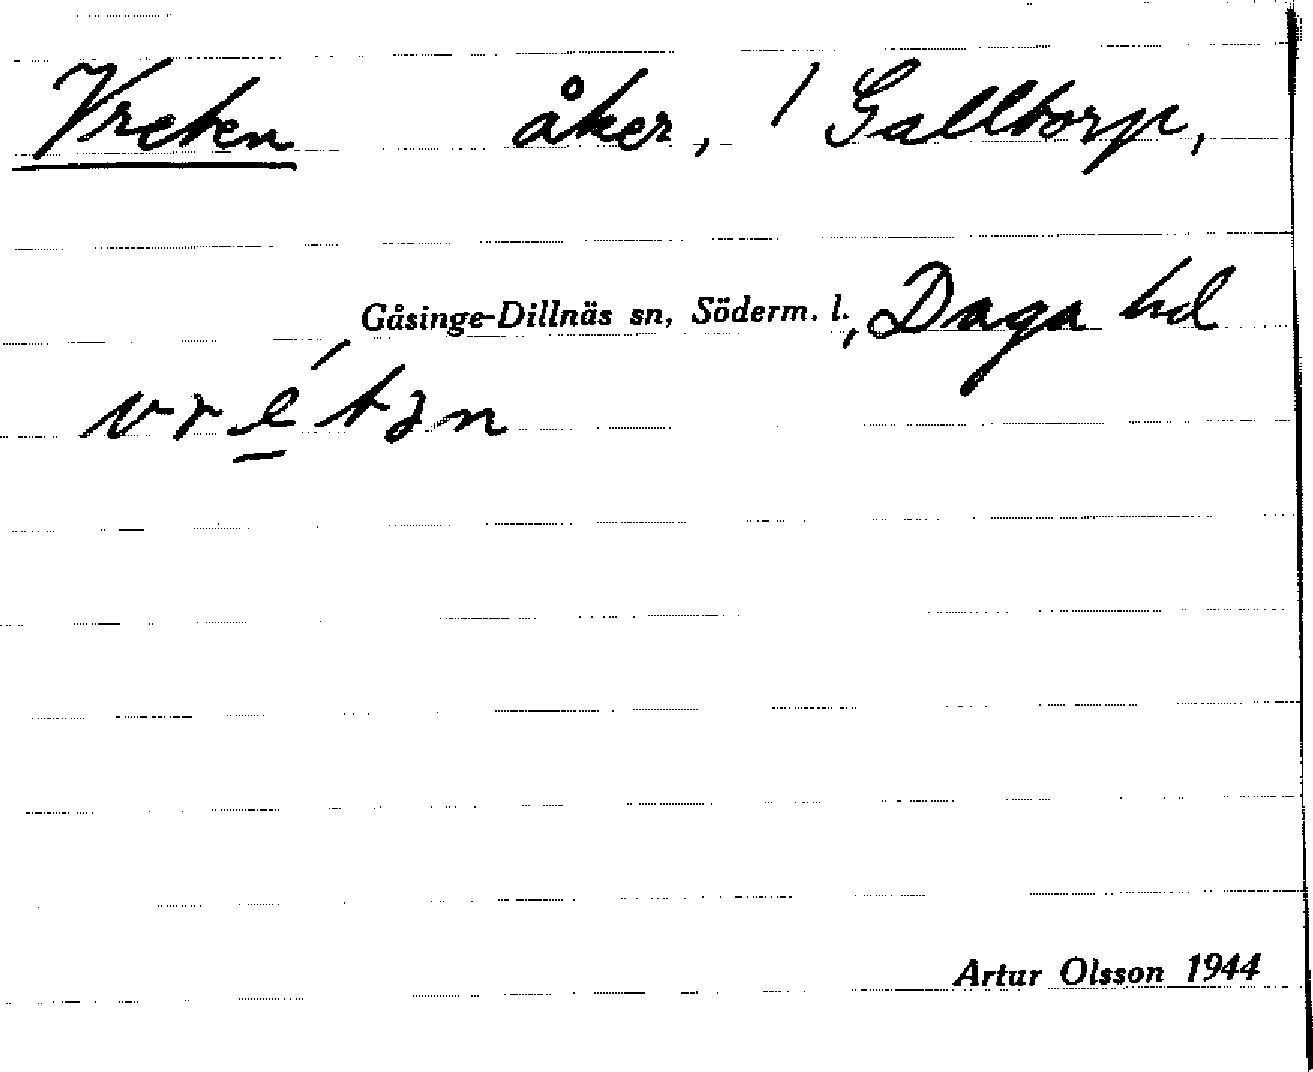 Vreten åker, / Galltorp,
Gåsinge-Dillnäs sn, Söderm. l., Daga hd
vré̱tən
Artur Olsson 1944